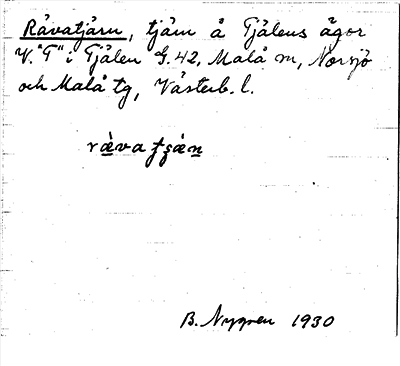 Rävatjärn, tjärn å Tjälens ägor
V. "T" i Tjälen G.42, Malå sn, Norsjö
och Malå tg, Västerb. l.
B. Nygren 1930